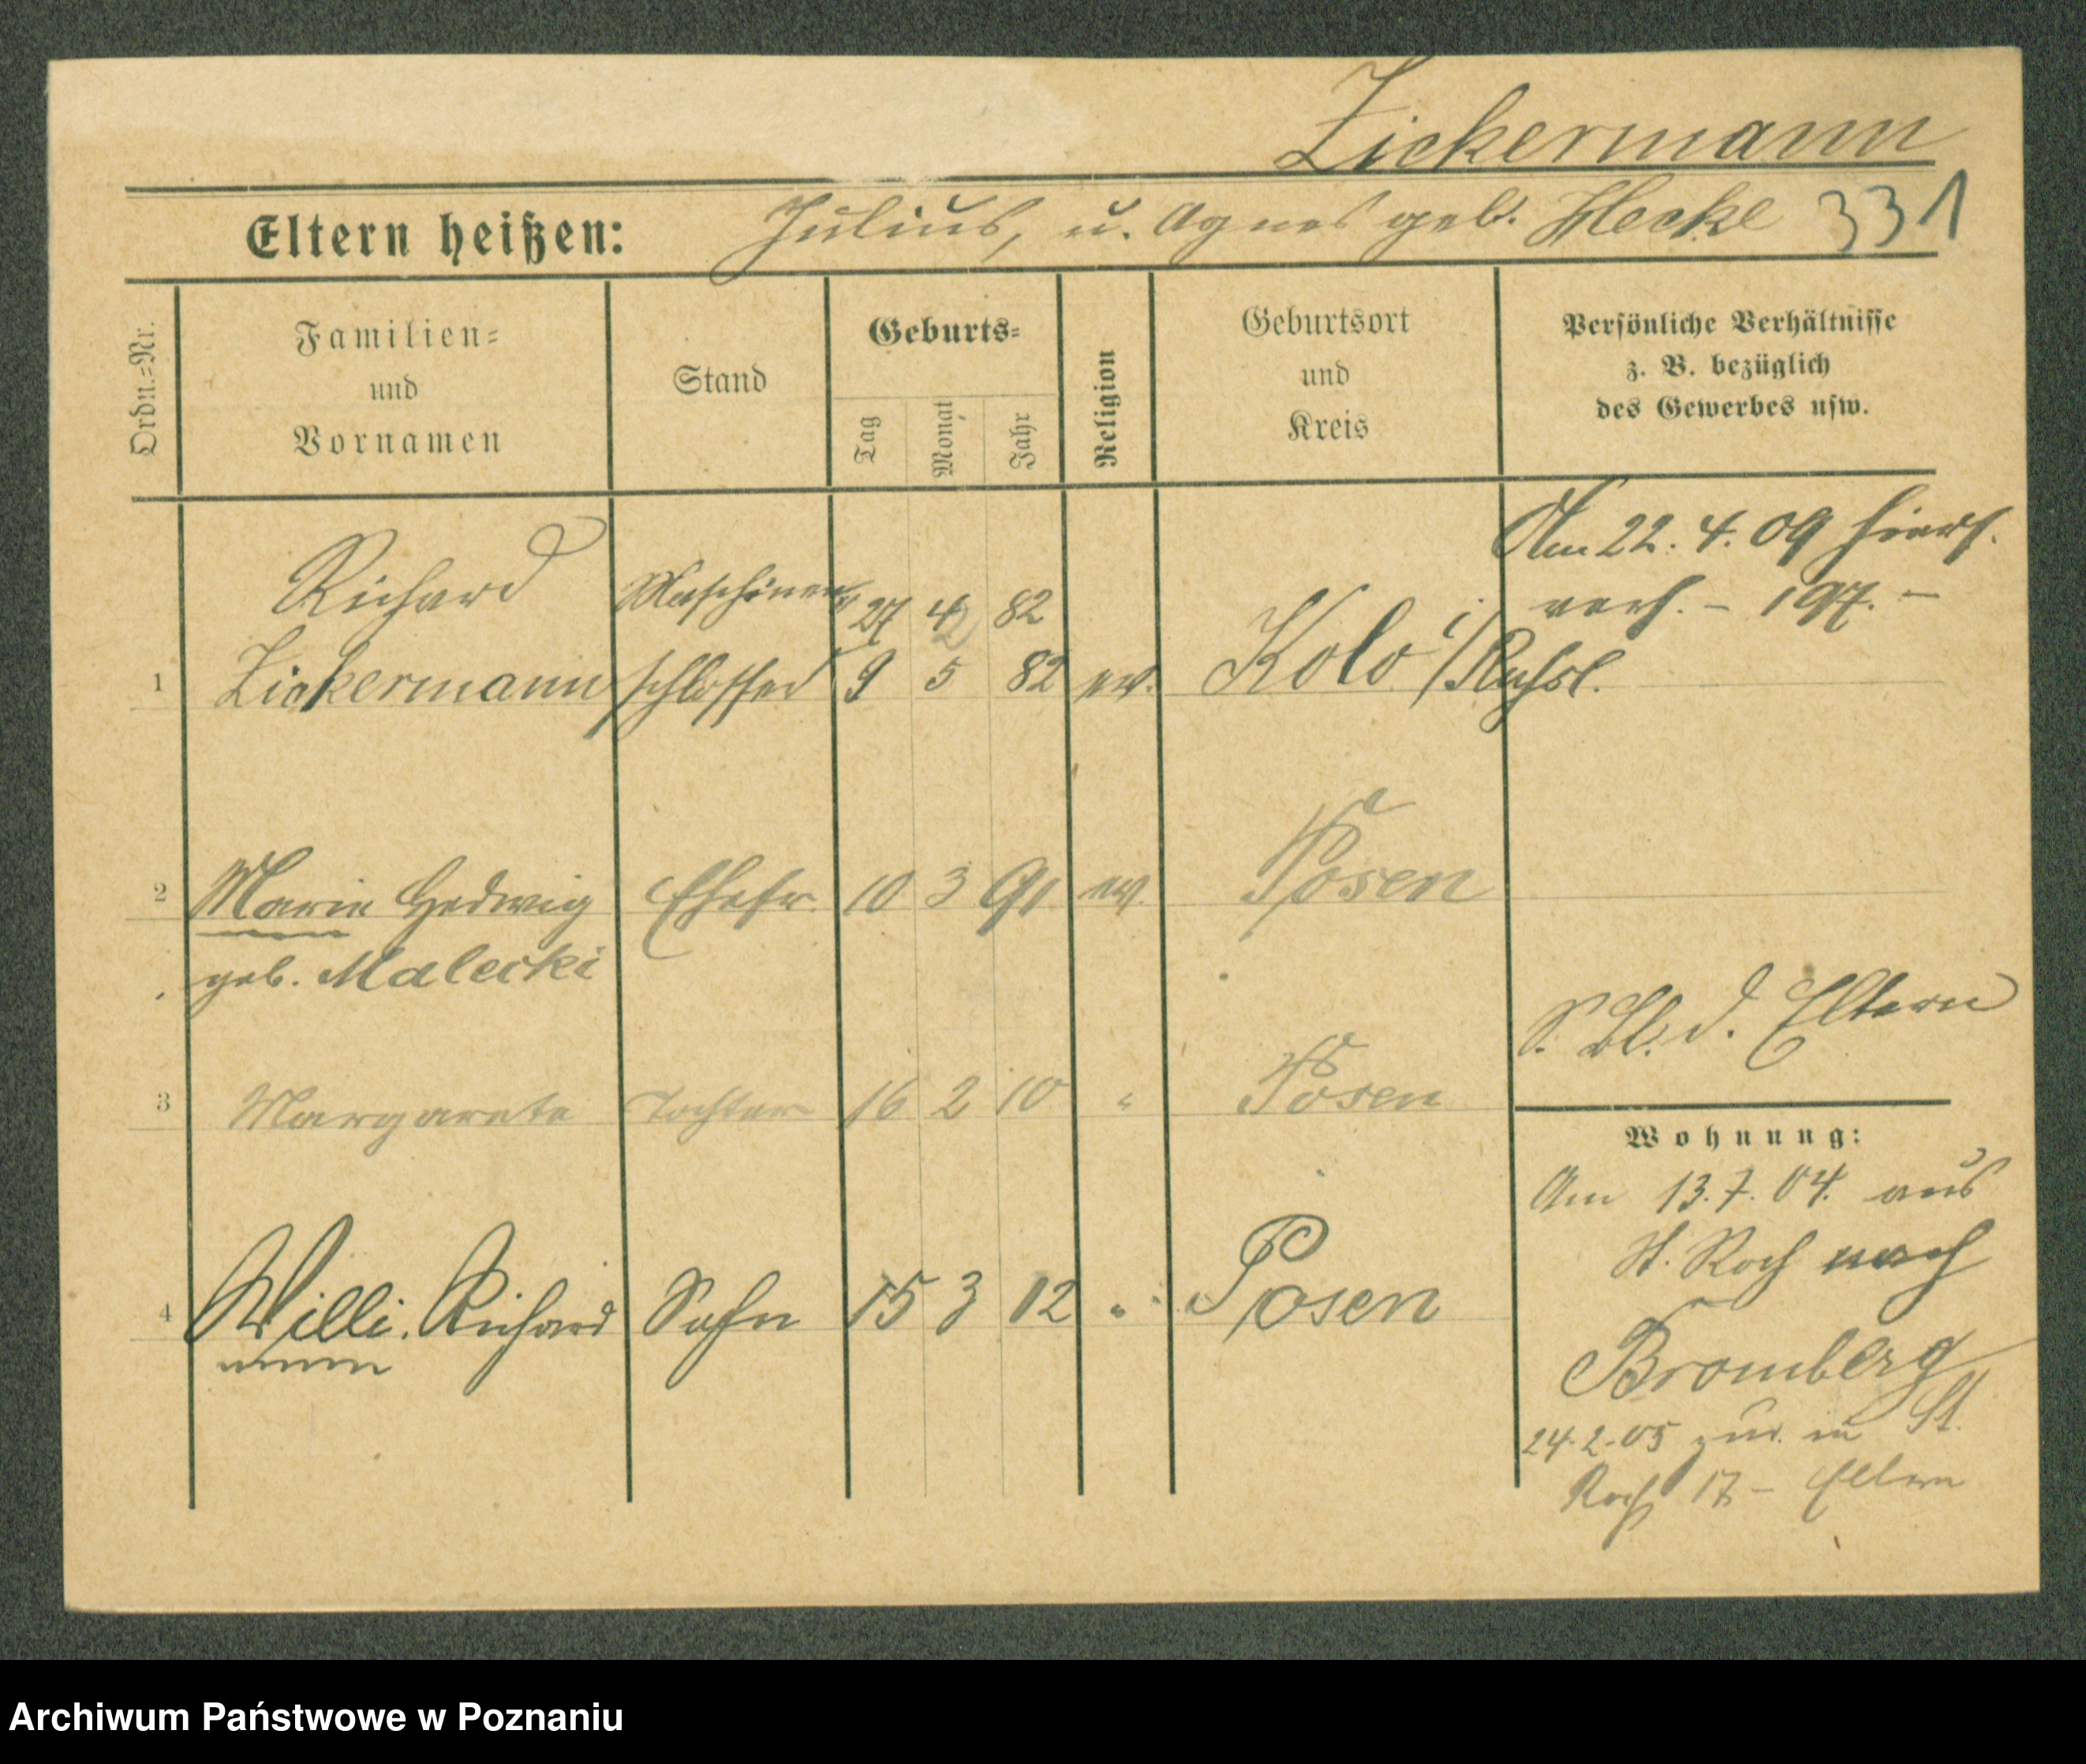 Zickermann
Eltern heißen: Julius, u. Agnes geb. Hecke 331
Ordn.=Nr.
Familien=
und
Vornamen
Stand
Geburts=
Tag
Monat
Jahr
Religion
Geburtsort
und
Kreis
Persönliche Verhältnisse
z. B. bezüglich
des Gewerbes usw.
Am 22. 4. 09 hiers.
verh. – 197. –
Richard Maschinen 27 4 82
1 Zickermann schlosser 9 5 82 ev. Kolo i/Rußl.
2 Marie Hedwig Ehefr. 10 3 91 ev. Posen
geb. Malecki
S. Bl. d. Eltern
3 Margarete Tochter 16 2 10 " Posen
Wohnung:
Am 13. 7. 04. aus
St. Roch nach
4 Willi. Richard Sohn 15 3 12 " Posen
Bromberg
24.2.05 zur. in St.
Roch 17 – Eltern
Archiwum Państwowe w Poznaniu